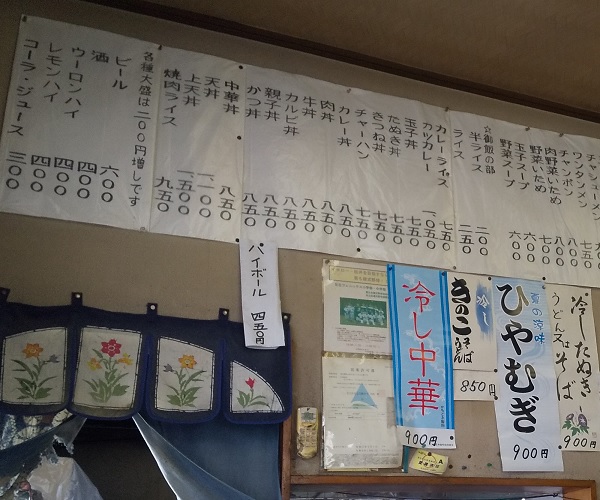 チャシューメン
ワンタンメン 七五〇
チャンポン 八〇〇
肉野菜いため 八〇〇
野菜いため 七〇〇
玉子スープ 六〇〇
野菜スープ 六〇〇
☆御飯の部
半ライス 二〇〇
ライス 二五〇
カレーライス 七五〇
カツカレー 一、〇五〇
玉子丼 七五〇
たぬき丼 七五〇
きつね丼 七五〇
チャーハン 七五〇
カレー丼 八五〇
肉丼 八五〇
牛丼 八五〇
カルビ丼 八五〇
親子丼 八五〇
かつ丼 八五〇
中華丼 八五〇
天丼 一、一〇〇
上天丼 一、五〇〇
焼肉ライス 九五〇
各種大盛は二〇〇円増しです
ビール 六〇〇
酒 四〇〇
ウーロンハイ 四〇〇
レモンハイ 四〇〇
コーラ・ジュース 三〇〇
ハイボール 四五〇円
冷したぬき
うどん又はそば
900円
夏の涼味
ひやむぎ
900円
冷し
きのこ
850円
冷し中華
900円